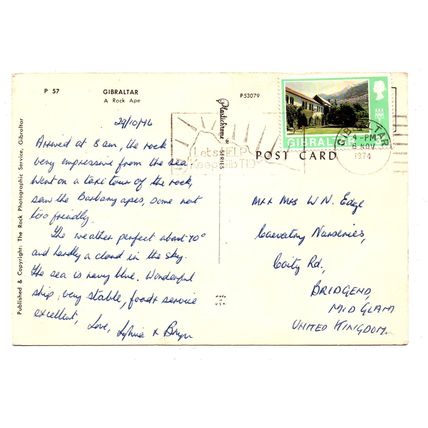 P 57
GIBRALTAR
A Rock Ape
29/10/76
Arrived at 8 am, the rock
very impressive from the sea.
Went on a taxi tour of the rock,
saw the Barbary apes, some not
too friendly.
The weather perfect about 70°
and hardly a cloud in the sky.
The sea is navy blue. Wonderful
ship, very stable, food & service
excellent,
Love, Sylvia &
Published & Copyright: The Rock Photographic Service, Gibraltar
Plastichrome
SERIES
P53079
POST CARD
GIBRAL
GIBRALTAR
4-PM
NOV
1974
Mr & Mrs W.N. Edge
Nurseries,
Coity Rd,
BRIDGEND,
MID GLAM
UNITED KINGDOM.